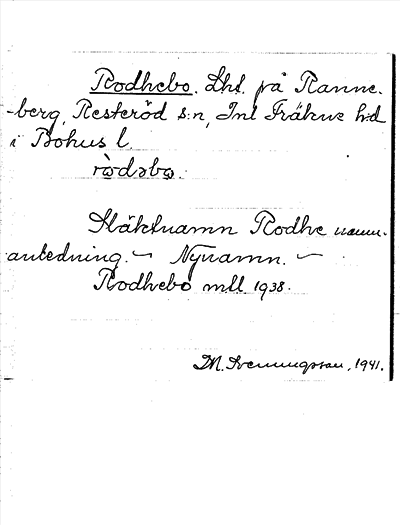 Rodhebo. Lht. på Ranne-
berg, Resteröd s:n, Inl Fräkne hd
i Bohus l
ròdəbo.
Släktnamn Rodhe namn-
anledning. — Nynamn. —
Rodhebo mtl 1938.
M. Sveningsson, 1941.